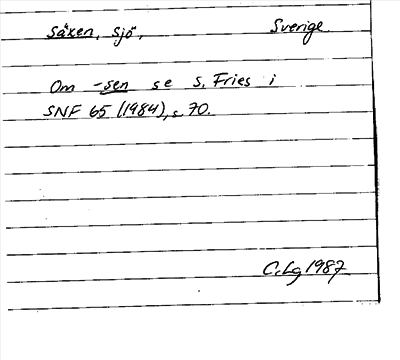 Säxen, sjö, Sverige
Om -sen se S. Fries i
SNF 65 (1984), s. 70.
C. Lg 1987